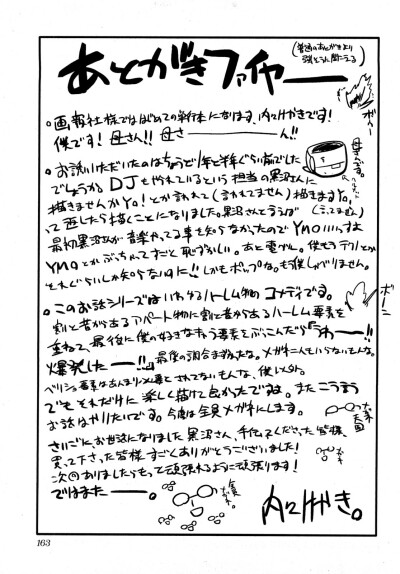 あとがきファイヤー
(普通のあとがきより
強そうに聞こえる)
ボー
○画報社様でははじめての単行本になります、内々けやきです!
僕です!母さん!!母さーーん!!
母さんです。
○お誘いいただいたのはちょうど1年と半年ぐらい前でした
でしょうか。DJもやれているという担当の黒沼さんに
描きませんかYo!とか言われて(言われてません)描きますYo!
って返したら描くことになりました。黒沼さんというのは
(言ってません)
最初黒沼さんが音楽やってる事を知らなかったのでYMOいいっすよ
YMOとかぶっちゃってすごく恥ずかしい。あと電グル。僕もうテクノとか
それぐらいしか知らないのに!!しかもポップな。もう僕しゃべりません。
ボー
○このお話シリーズはいわゆるハーレム物のコメディです。
割と昔からあるアパート物に割と昔からあるハーレム要素を
重ねて、最後に僕の好きな要素をぶっこんだら「うわー!!
爆発したー!!」最後の調合まずかったな。メガネ二人もいらないもんな。
要素はあんまり必要とされてないもんな、僕以外。
でもそれだけに楽しく描けて良かったですね。またこういう
お話はやりたいです。今度は全員メガネにします。
さいごにお世話になりました黒沼さん、手伝ってくださった皆様、
買って下さった皆様すごくありがとうございました!
次回ありましたらもって頑張れるように頑張ります!
ではまたーー。
全員
内々けやき。
163